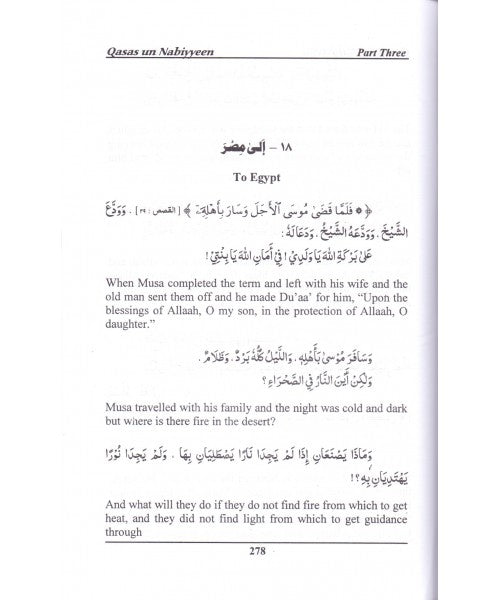 Qasas un Nabiyyeen Part Three
١٨ - إِلَىٰ مِصْرَ
To Egypt
﴿ * فَلَمَّا قَضَىٰ مُوسَى الْأَجَلَ وَسَارَ بِأَهْلِهِۦٓ ﴾ [القصص : ٢٩] . وَوَدَّعَ
الشَّيْخَ . وَوَدَّعَهُ الشَّيْخُ . وَدَعَا لَهُ :
عَلَىٰ بَرَكَةِ اللهِ يَا وَلَدِيْ ! فِيْ أَمَانِ اللهِ يَا بِنْتِيْ !
When Musa completed the term and left with his wife and the
old man sent them off and he made Du'aa' for him, “Upon the
blessings of Allaah, O my son, in the protection of Allaah, O
daughter.”
وَسَافَرَ مُوْسَىٰ بِأَهْلِهِ . وَاللَّيْلُ كُلُّهُ بَرْدٌ . وَظَلَامٌ .
وَلَكِنْ أَيْنَ النَّارُ فِي الصَّحْرَاءِ ؟
Musa travelled with his family and the night was cold and dark
but where is there fire in the desert?
وَمَاذَا يَصْنَعَانِ إِذَا لَمْ يَجِدَا نَارًا يَصْطَلِيَانِ بِهَا . وَلَمْ يَجِدَا نُوْرًا
يَهْتَدِيَانِ بِهِ ؟!
And what will they do if they do not find fire from which to get
heat, and they did not find light from which to get guidance
through
278